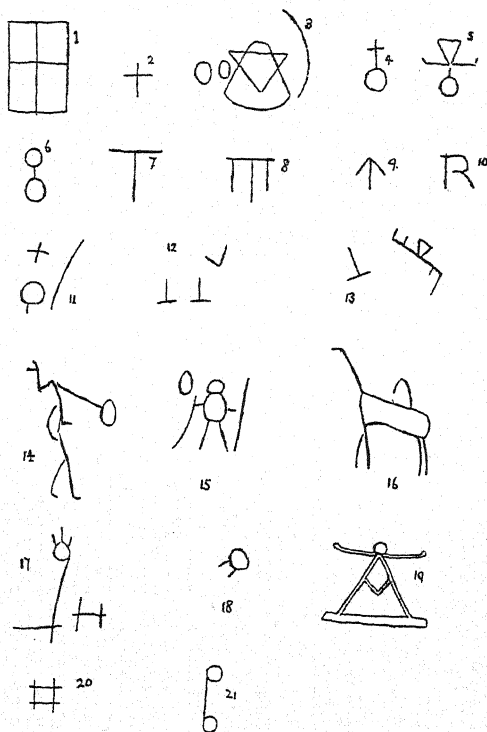 1 2 3 4 5
6 7 8 9. 10
11 12 13
14 15 16
17 18 19
20 21